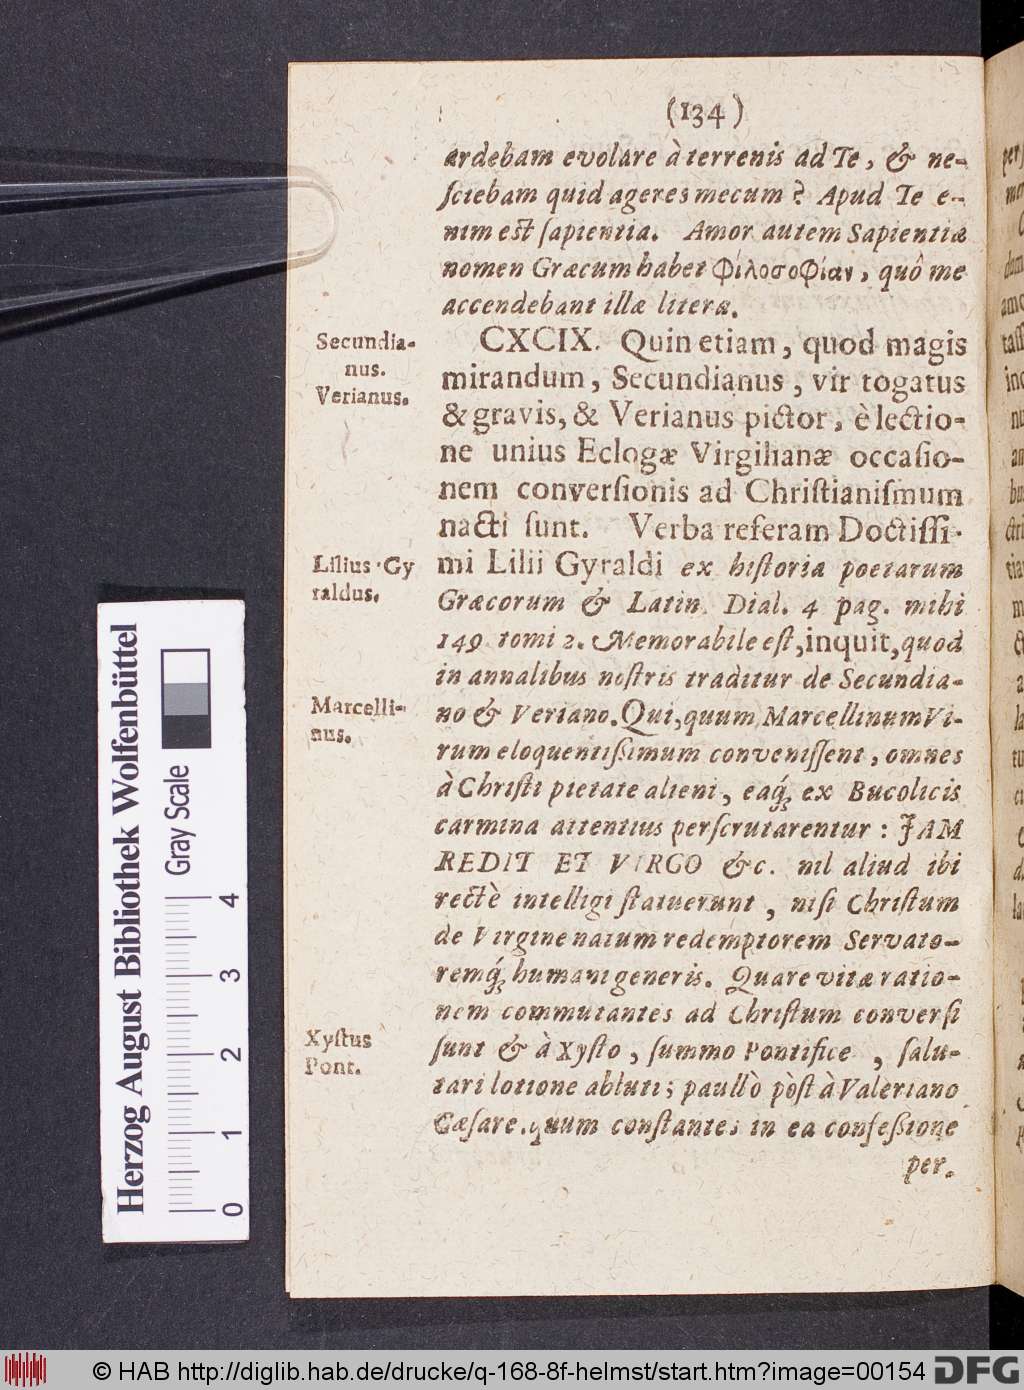 (134)
ardebam evolare à terrenis ad Te, & ne-
ſciebam quid ageres mecum? Apud Te e-
nim eſt ſapientia. Amor autem Sapientiæ
nomen Græcum habet Φίλοσοφίαν, quô me
accendebant illæ literæ.
Secundia-
nus.
Verianus.
CXCIX. Quin etiam, quod magis
mirandum, Secundianus, vir togatus
& gravis, & Verianus pictor, è lectio-
ne unius Eclogæ Virgilianæ occaſio-
nem converſionis ad Chriſtianiſmum
nacti ſunt. Verba referam Doctiſſi-
Lilius Gy
raldus.
mi Lilii Gyraldi ex hiſtoria poetarum
Græcorum & Latin. Dial. 4 pag. mihi
149 tomi 2. Memorabile eſt, inquit, quod
in annalibus noſtris traditur de Secundia-
Marcelli-
nus.
no & Veriano. Qui, quum Marcellinum Vi-
rum eloquentiſſimum conveniſſent, omnes
à Chriſti pietate alieni, eaq́; ex Bucolicis
carmina attentius perſcrutarentur: JAM
REDIT ET VIRGO &c. nil aliud ibi
rectè intelligi ſtatuerunt, niſi Chriſtum
de Virgine natum redemptorem Servato-
remq́; humani generis. Quare vitæ ratio-
nem commutantes ad Chriſtum converſi
Xyſtus
Pont.
ſunt & à Xyſto, ſummo Pontifice, ſalu-
tari lotione abluti; paullò pòſt à Valeriano
Cæſare, quum conſtantes in ea confeſſione
per.
Herzog August Bibliothek Wolfenbüttel
Gray Scale
0 1 2 3 4
© HAB http://diglib.hab.de/drucke/q-168-8f-helmst/start.htm?image=00154
DFG